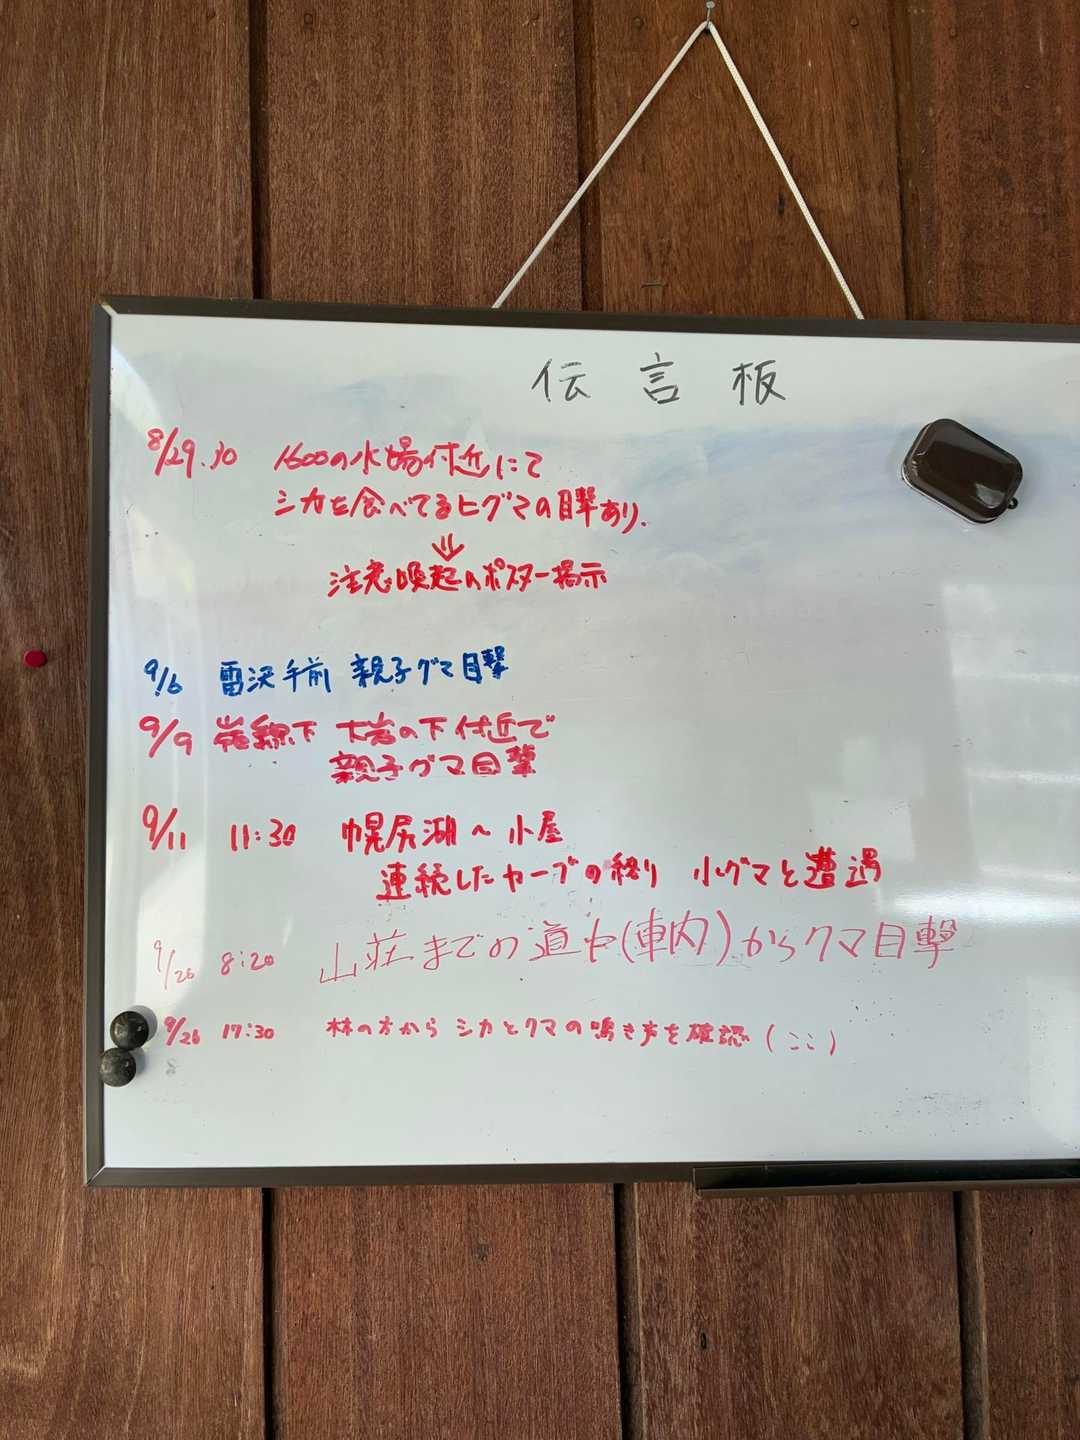 伝言板
8/29.30 1600の水場付近にて
シカを食べてるヒグマの目撃あり.
⇓
注意喚起のポスター掲示
9/6 雷沢手前 親子グマ目撃
9/9 稜線下 大岩の下付近で
親子グマ目撃
9/11 11:30 幌尻湖～小屋
連続したカーブの終り 小グマと遭遇
9/26 8:20 山荘までの道中(車内)からクマ目撃
9/26 17:30 林の方から シカとクマの鳴き声を確認(ここ)